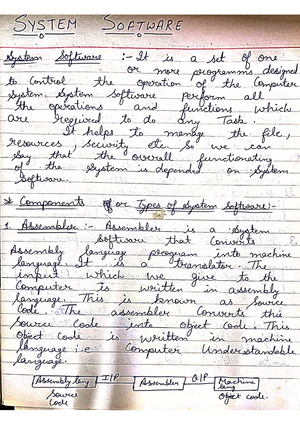 SYSTEM SOFTWARE
System Software :- It is a set of one
or more programms designed
to Control the operation of the Computer
System. System Software perform all
the operations and functions which
are required to do any Task.
It helps to manage the file,
resources, security etc. So we can
say that the overall functioning
of the System is depender on System
Software.
* Components of or Types of System Software:-
1. Assembler :- Assembler is a System
Software that converts
Assembly language program into machine
language. It is a translator. The
input which we give to the
Computer is written in assembly
language. This is known as Source
Code. The assembler Converts this
Source Code into object Code. This
Object Code is written in machine
language i.e Computer Understandable
language.
Assembly lang I/P Assembler O/P Machine lang
Source Code Object Code.